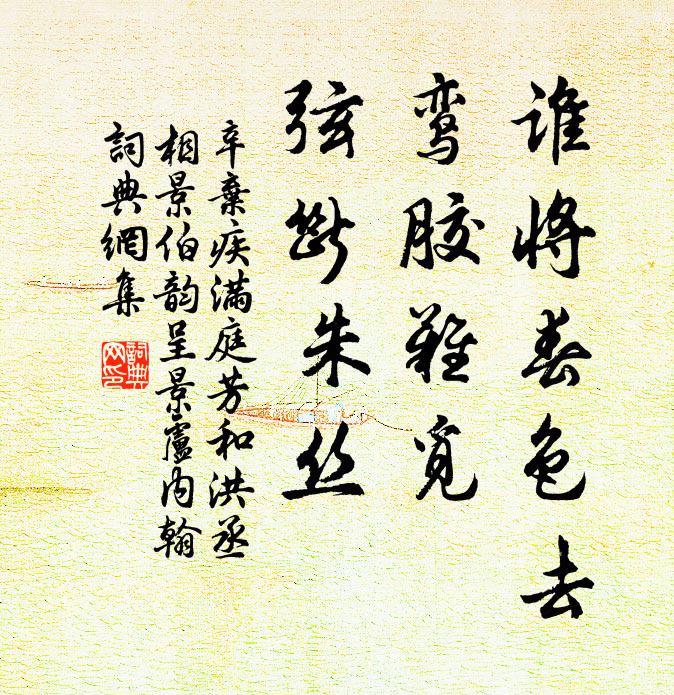 谁将春色去
鸾胶难觅
弦断朱丝
辛棄疾满庭芳和洪丞
相景伯韵呈景廬内翰
詞典網集
詞典
网印